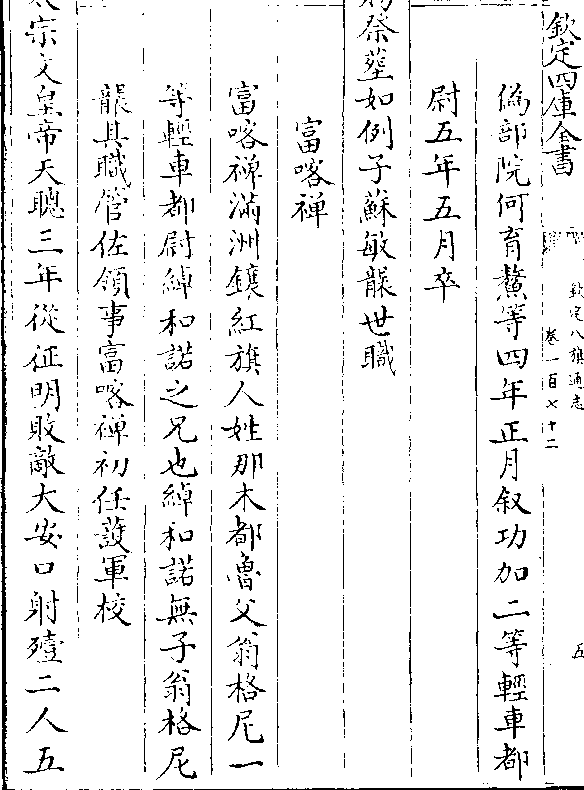 欽定四庫全書
欽定八旗通志
卷一百七十二
五
偽部院何育鰲等四年正月叙功加二等輕車都
尉五年五月卒
祭塟如例子蘇敏襲世職
富喀禪
富喀禪滿洲鑲紅旗人姓那木都魯父翁格尼一
等輕車都尉綽和諾之兄也綽和諾無子翁格尼
襲其職管佐領事富喀禪初任護軍校
宗文皇帝天聰三年從征明敗敵大安口射殪二人五